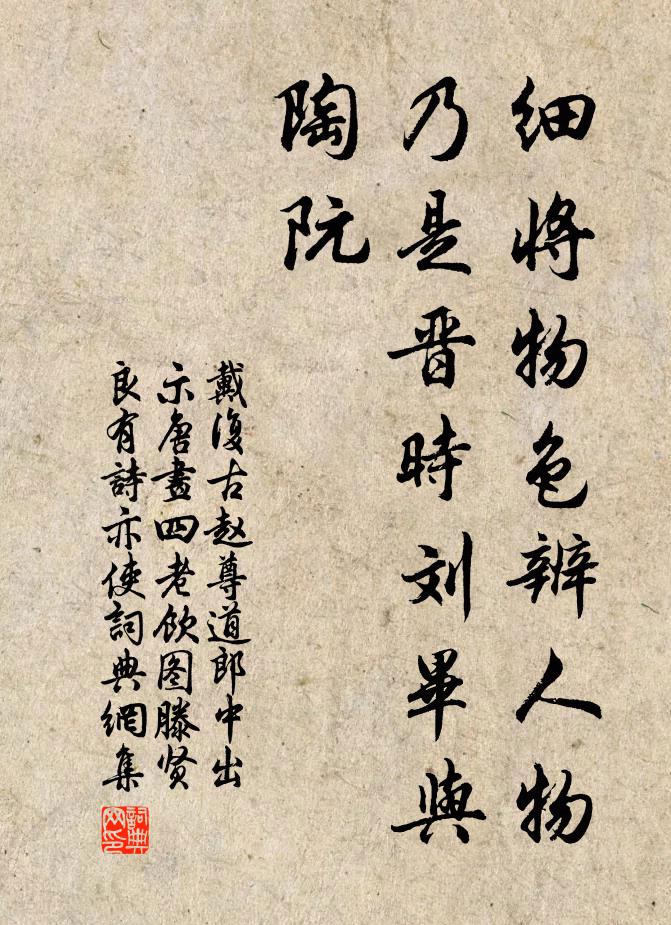 细将物色辨人物
乃是晋時刘畢與
陶阮
戴復古赵尊道郎中出
示唐畫四老飲图滕贤
良有詩亦使詞典網集
詞典
网印